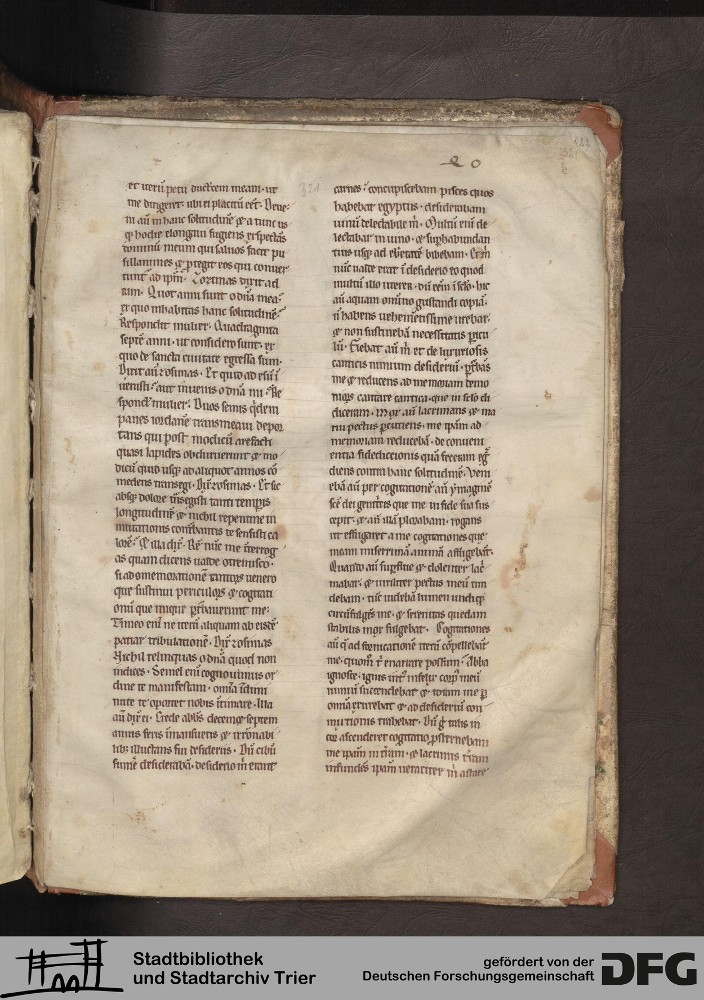 et ueru petii ductricem meam · ut
me dirigeret ubi ei placitu eet · Deue-
ni au in hanc solitudine & a tunc usq
& hodie elongaui fugiens exspectas
dominu meum qui saluos facit pu
sillanimes & qui conuer
tunt ad ipm · zosimas dixit ad
eam · Quot anni sunt o dna mea
ex quo inhabitas hanc solitudine
Respondit mulier · Quadraginta
septe anni · ut considero sunt · ex
quo de sancta ciuitate egressa sum ·
Dixit au zosimas · Et quid ad esu
aut inuenis o dna mi · Re
spond mulier · Duos semis qdem
panes iordane transmeaui depor
tans qui post modicu arefacti
quasi lapides obduruerunt & mo
dicu quid usq ad aliquot annos co
medens transegi · Dix zosimas · Et sic
absq dolore tnsegisti tanti temporis
longitudine & nichil repentine in
mutationis te sensisti ca
lore · & illa dix · Re nuc me interrog
as quam dicens ualde otremisco ·
si ad omemoratione tantor uenero
que sustinui periculor & cogitati
onu que inique perbauerunt me ·
Timeo eni ne iteru aliquam ab eisde
patiar tribulatione · Dix zosimas
Nichil relinquas o dna quod non
indices · Semel eni cognouimus or
dine te manifestam · omia
nute te oportet nobis intimare · Illa
au dix ei · Crede abbas decem & septem
annis feris immansuetis & irronabi
lib illuctans fui desideriis · Du cibu
sume desideraba · desiderio m erant
20
321
carnes · concupiscebam pisces quos
habebat egyptus · desiderabam
uinu delectabile m · Multu eni de
lectabar in uino · & suphabundan
tius usq ad ebrietate bibebam ·
nuc ualde erat i desiderio eo quod
multu illo uterer · du eem i sclo · hic
au aquam omino gustandi copia
n habens uehementissime urebar
& non sustineba necessitatis picu
lu · Fiebat au m et de luxuriosis
canticis nimium desideriu · pbas
me & reducens ad memoriam demo
nior cantare cantica · que in sclo di
diceram · Mox au lacrimans & ma
nu pectus percutiens · me ipam ad
memoriam reduceba · de conueni
entia fideiectionis qua feceram egre
diens contra hanc solitudine · Veni
eba au per cogitatione an ymagine
sce dei genitricis que me in fide sua sus
cepit · & an illa plorabam · rogans
ut effugaret a me cogitationes que
meam miserrima anima affligebat ·
Quando au supflue & dolenter lac
mabar · & uiriliter pectus meu tun
debam · tuc uideba lumen undiq
circufulges me · & serenitas quedam
stabilis mox fulgebat · Cogitationes
au q ad fornicatione iteru copellebat
me · quom t enarrare possum · Abba
ignosce · ignis int infelix corp meu
nimiu succendebat & totum me p
omia exurebat & ad desideriu con
mixtionis trahebat · Du g talis in
cor ascenderet cogitatio psternebam
me ipam in tram · & lacrimis tram
infundes ipam ueraciter m astare
Stadtbibliothek
und Stadtarchiv Trier
gefördert von der
Deutschen Forschungsgemeinschaft
DFG